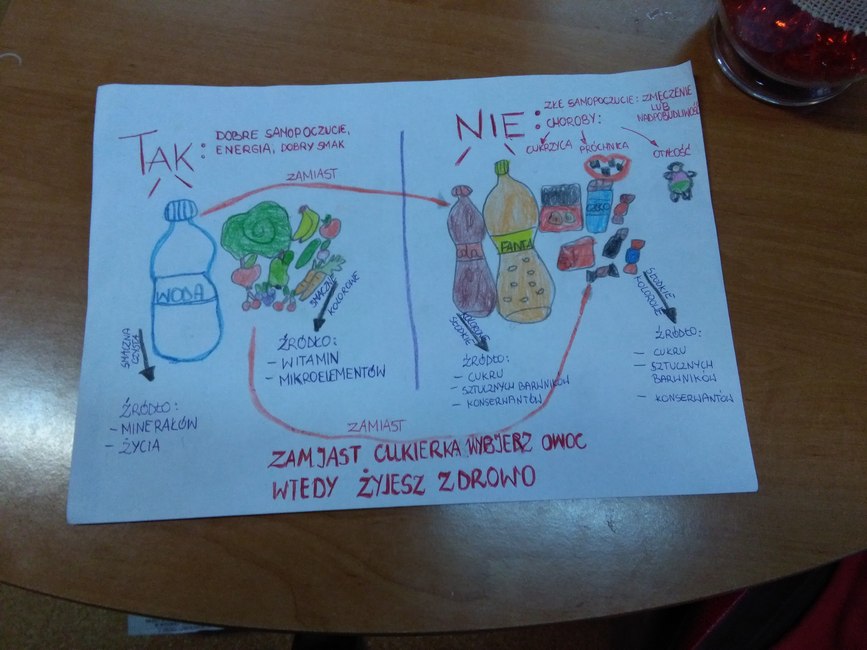 TAK:
DOBRE SAMOPOCZUCIE,
ENERGIA, DOBRY SMAK
ZAMIAST
WODA
SMACZNA
CZYSTA
ŹRÓDŁO:
- MINERAŁÓW
- ŻYCIA
SMACZNE
KOLOROWE
ŹRÓDŁO:
- WITAMIN
- MIKROELEMENTÓW
NIE:
ZŁE SAMOPOCZUCIE: ZMĘCZENIE
LUB
NADPOBUDLIWOŚĆ
CHOROBY:
CUKRZYCA
PRÓCHNICA
OTYŁOŚĆ
FANTA
KOLOROWE
SŁODKIE
ŹRÓDŁO:
- CUKRU
- SZTUCZNYCH BARWNIKÓW
- KONSERWANTÓW
SŁODKIE
KOLOROWE
ŹRÓDŁO:
- CUKRU
- SZTUCZNYCH
BARWNIKÓW
- KONSERWANTÓW
ZAMIAST
ZAMIAST CUKIERKA WYBIERZ OWOC
WTEDY ŻYJESZ ZDROWO